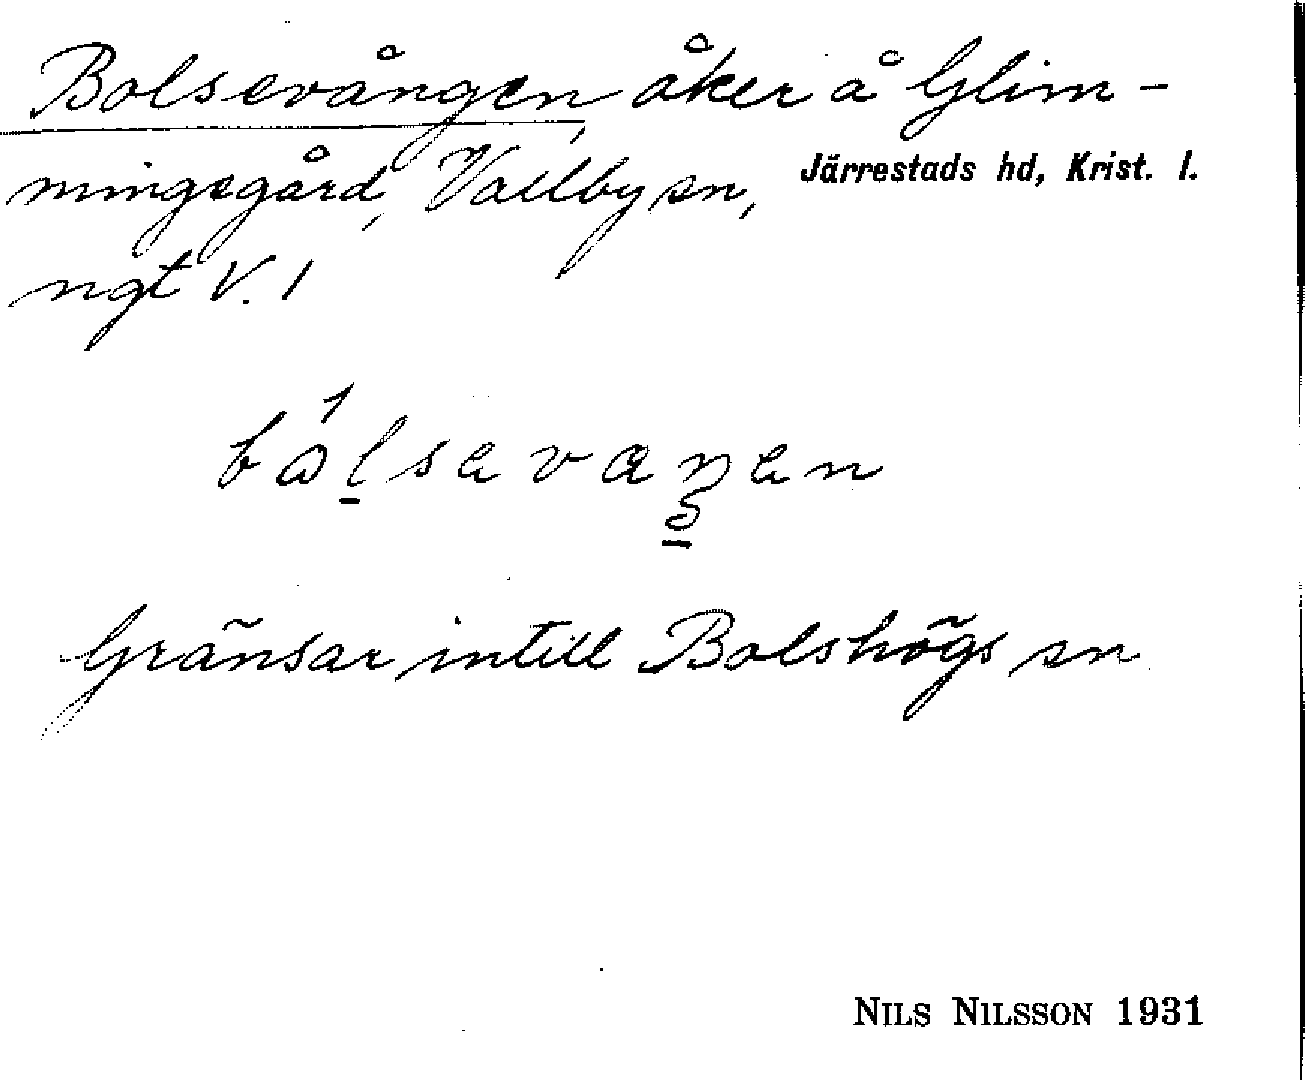 Bolsevången, åker å Glim-
mingegård, Vallby sn, Järrestads hd, Krist. l.
ngt V. 1
Gränsar intill Bolshögs sn
NILS NILSSON 1931